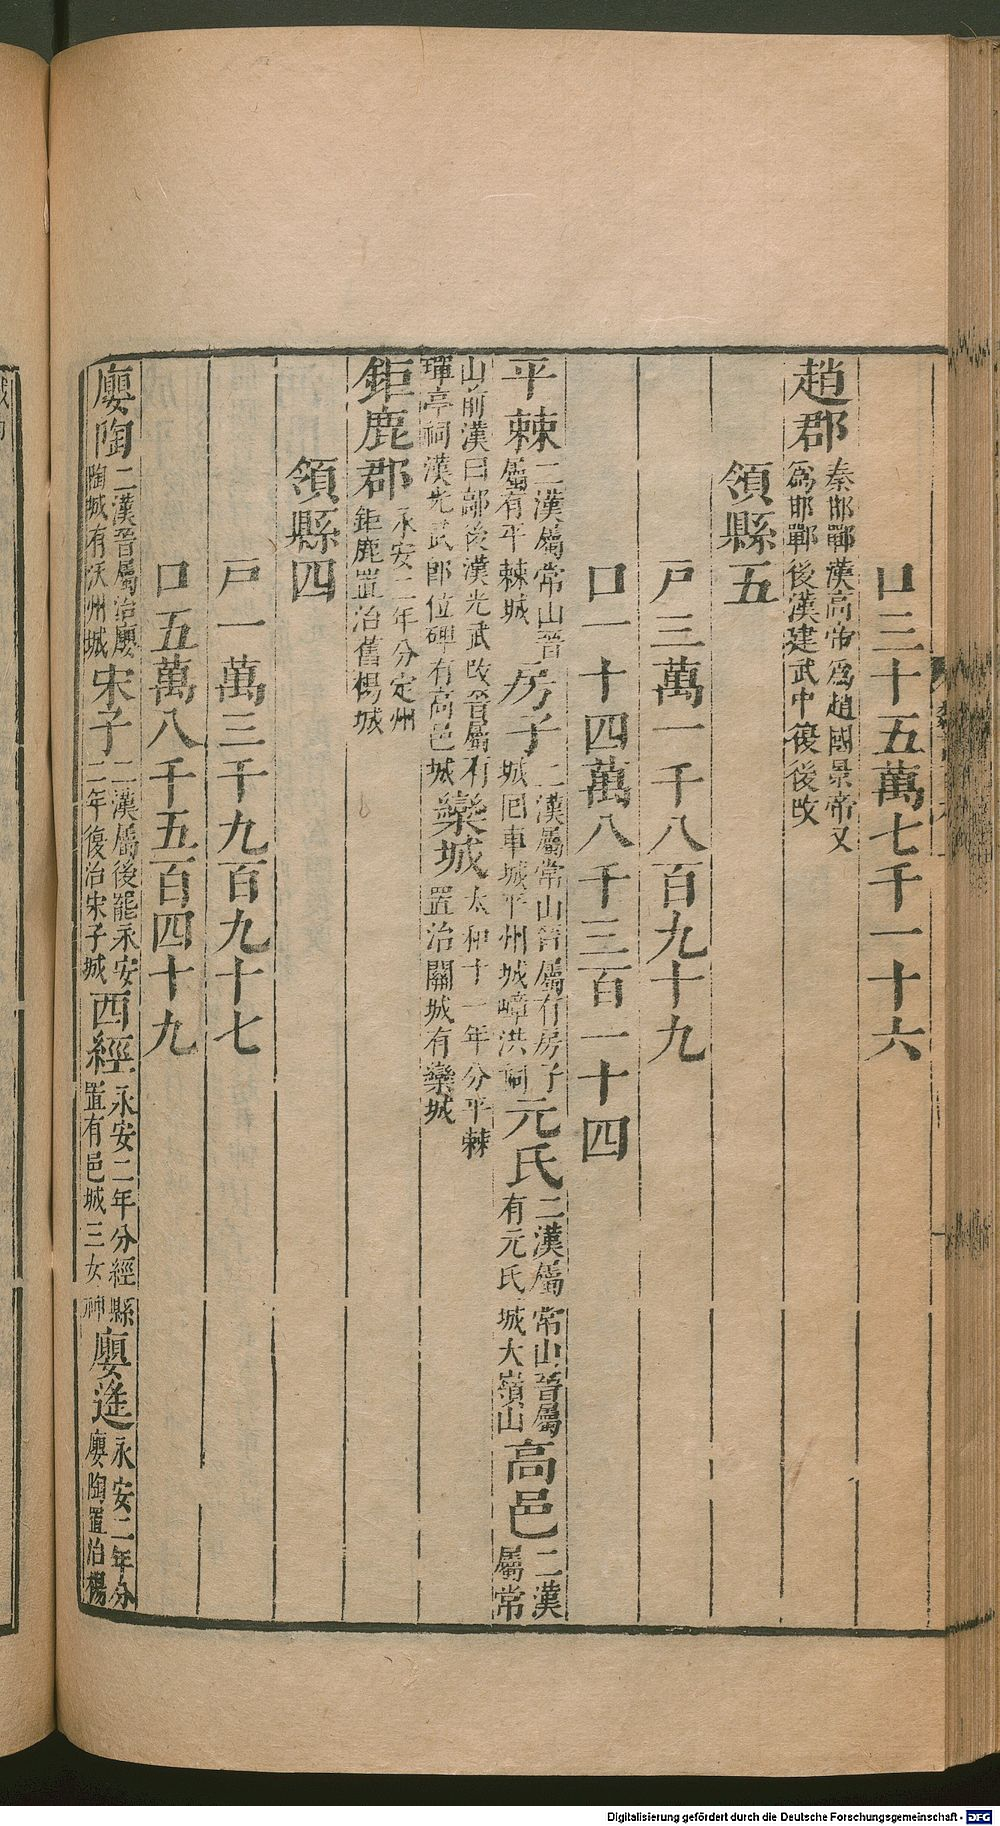 口三十五萬七千一十六
趙郡秦邯鄲漢高帝爲趙國景帝又
爲邯鄲後漢建武中復後改
領縣五
戸三萬一千八百九十九
口一十四萬八千三百一十四
平棘二漢屬常山晉
屬有平棘城房子二漢屬常山晉屬有房子
城回車城平州城嶂洪祠元氏二漢屬常山晉屬
有元氏城大嶺山高邑二漢
屬常
山前漢曰鄗後漢光武改晉屬有
琿亭祠漢光武卽位碑有高邑城欒城太和十一年分平棘
置治關城有欒城
鉅鹿郡永安二年分定州
鉅鹿置治舊楊城
領縣四
戸一萬三千九百九十七
口五萬八千五百四十九
廮陶二漢晉屬治廮
陶城有沃州城宋子二漢屬後罷永安
二年復治宋子城西經永安二年分經縣
置有邑城三女神廮遙永安二年分
廮陶置治楊
Digitalisierung gefördert durch die Deutsche Forschungsgemeinschaft - DFG